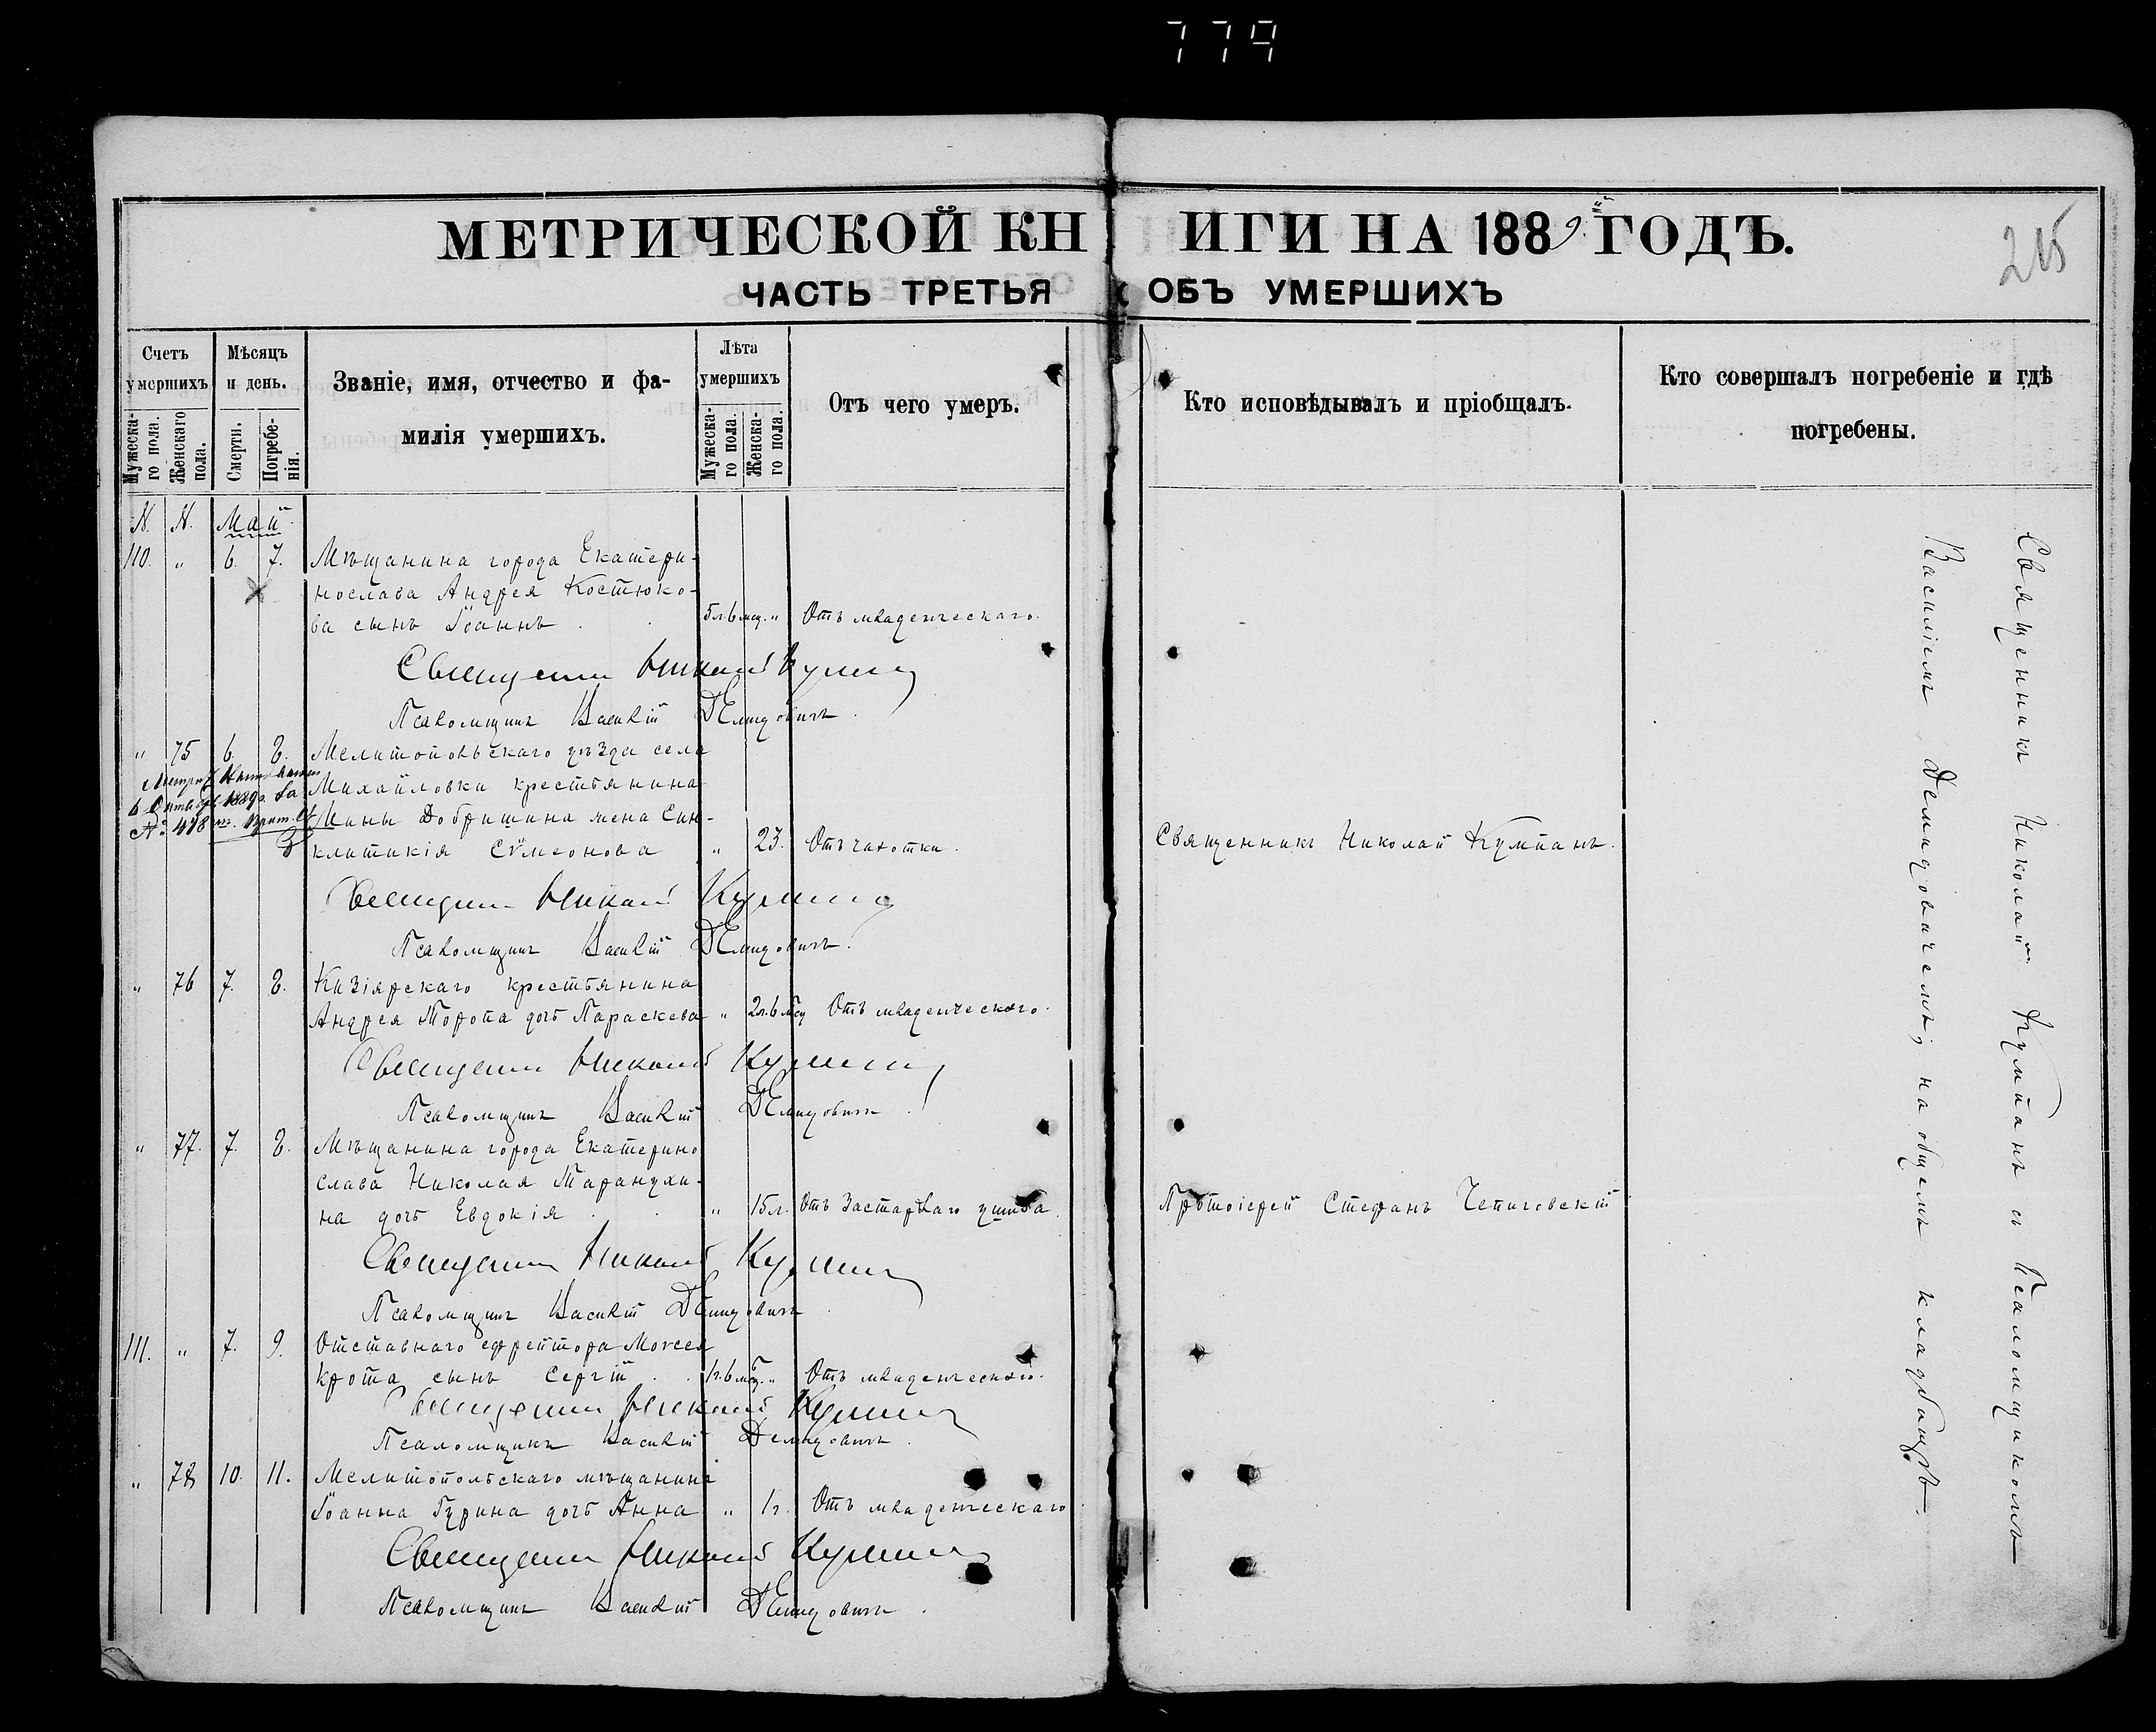 779
МЕТРИЧЕСКОЙ КНИГИ НА 1889й ГОДЪ.
215
ЧАСТЬ ТРЕТЬЯ ОБЪ УМЕРШИХЪ
Счетъ умершихъ
Мужескаго пола.
Женскаго пола.
Мѣсяцъ и день.
Смерти.
Погребенія.
Званіе, имя, отчество и фа-
милія умершихъ.
Лѣта умершихъ
Мужеска-го пола.
Женска-го пола.
Отъ чего умеръ.
Кто исповѣдывалъ и пріобщалъ.
Кто совершалъ погребеніе и гдѣ
погребены.
N. N. Май
110. " 6. 7. Мѣщанина города Екатери-
нослава Андрея Костюко-
ва сынъ Іоаннъ . . 5л 6 мц. " Отъ младенческаго.
Священникъ Николай Кумпанъ
Псаломщикъ Василій Демидовичъ.
" 75 6. 8. Мелитопольскаго уѣзда села
Михайловки крестьянина
6 Октября 1889 г. за
Мины Добришина жена Син-
№ 478
клитикія Сѵмеонова " 23. Отъ чахотки. Священникъ Николай Кумпанъ.
Священникъ Николай Кумпанъ
Псаломщикъ Василій Демидовичъ.
" 76 7. 8. Кизіярскаго крестьянина
Андрея Торопа дочь Параскева " 2л. 6 мсц Отъ младенческаго.
Священникъ Николай Кумпанъ
Псаломщикъ Василій Демидовичъ.
" 77. 7. 8. Мѣщанина города Екатерино
слава Николая Таранухи-
на дочь Евдокія . . " 15л. Отъ застарѣлаго ушиба. Протоіерей Стефанъ Чепиговскій
Священникъ Николай Кумпанъ
Псаломщикъ Василій Демидовичъ.
111. " 7. 9. Отставного ефрейтора Моѵсея
Крота сынъ Сергій . . 1г. 6 мсц. " Отъ младенческаго.
Священникъ Николай Кумпанъ
Псаломщикъ Василій Демидовичъ.
" 78 10. 11. Мелитопольскаго мѣщанина
Іоанна Гурина дочь Анна " 1г. Отъ младенческаго.
Священникъ Николай Кумпанъ
Псаломщикъ Василій Демидовичъ.
Священникъ Николай Кумпанъ съ Псаломщикомъ
Василіемъ Демидовичемъ, на общемъ кладбищѣ.